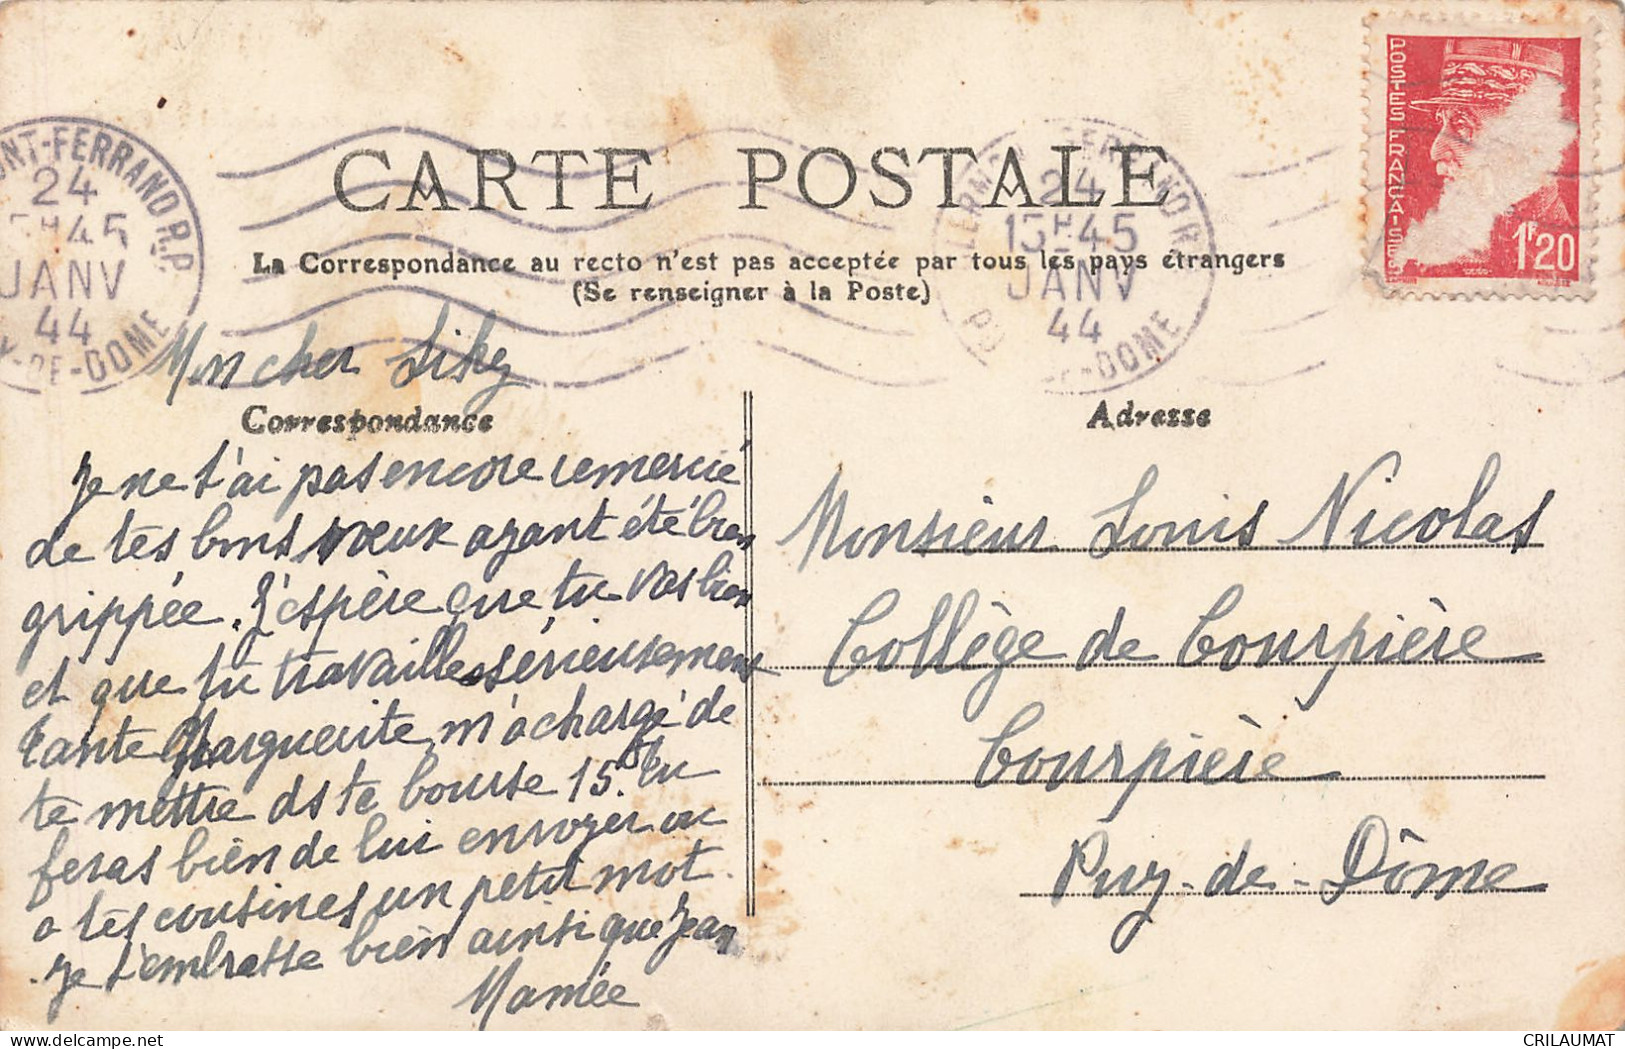 CARTE POSTALE
La Correspondance au recto n'est pas acceptée par tous les pays étrangers
(Se renseigner à la Poste)
ONT-FERRAND R.P.
24
15H45
JANV
44
Y-DE-DOME
CLERMONT-FERRAND R.P.
24
15H45
JANV
44
PUY-DE-DOME
POSTES FRANCAISES
1F20
Correspondance
Mon cher
Je ne t'ai pas encore remercié
de tes bons vœux ayant été bien
grippée. J'espère que tu vas bien
et que tu travailles sérieusement
Tante Marguerite m'a chargé de
te mettre ds te bourse 15f. tu
feras bien de lui envoyer ou
a tes cousines un petit mot.
Je t'embrasse bien ainsi que Jean
Mamée
Adresse
Monsieur Louis Nicolas
Collège de Courpière
Courpière
Puy-de-Dôme
CRILAUMAT